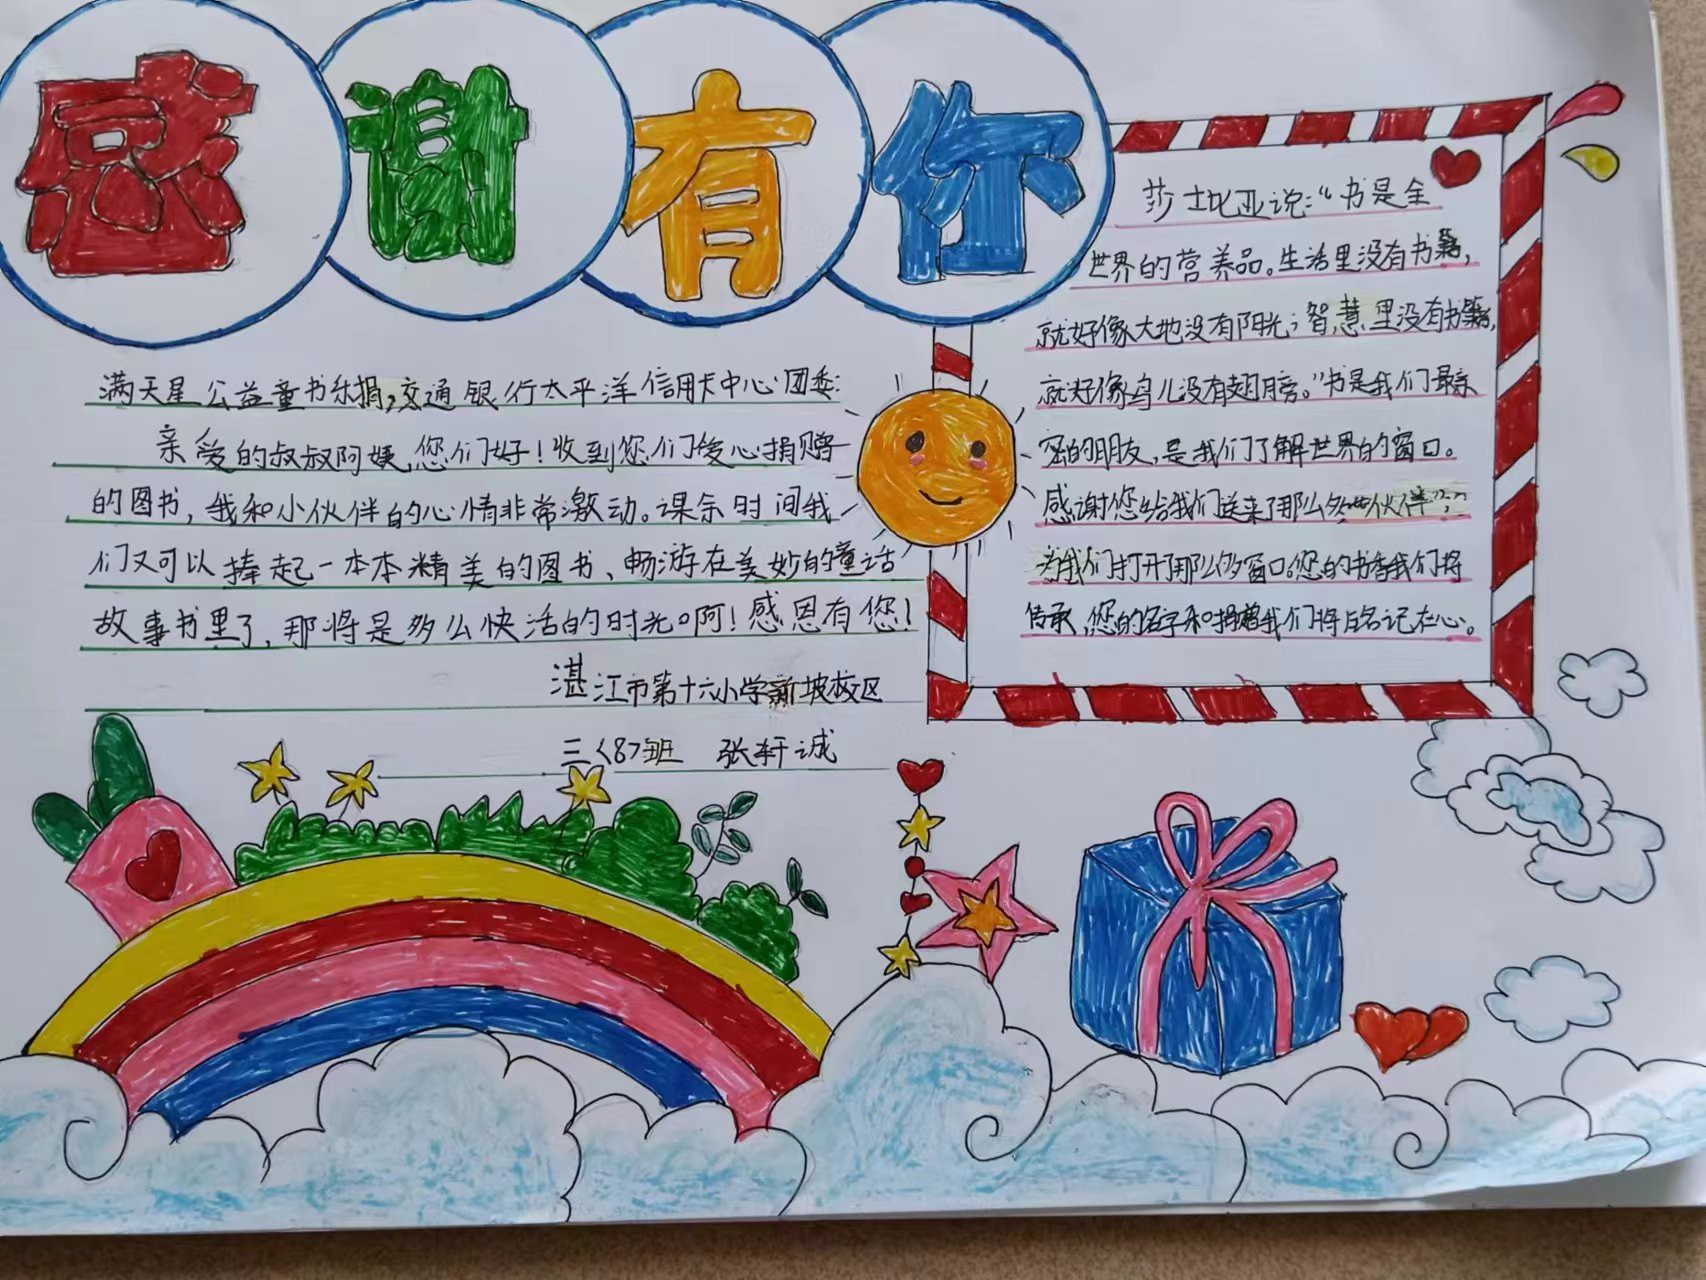 感谢有你
满天星公益童书乐捐,交通银行太平洋信用卡中心团委:
亲爱的叔叔阿姨,您们好!收到您们爱心捐赠
的图书,我和小伙伴的心情非常激动。课余时间我
们又可以捧起一本本精美的图书、畅游在美妙的童话
故事书里了,那将是多么快活的时光啊!感恩有您!
湛江市第十六小学新坡校区
三〈8〉班 张轩诚
莎士比亚说:“书是全
世界的营养品。生活里没有书籍,
就好像大地没有阳光;智慧里没有书籍,
就好像鸟儿没有翅膀。”书是我们最亲
密的朋友,是我们了解世界的窗口。
感谢您给我们送来了那么多“伙伴”,
为我们打开了那么多窗口。您的书香我们将
传承,您的名字和捐赠我们将永记在心。